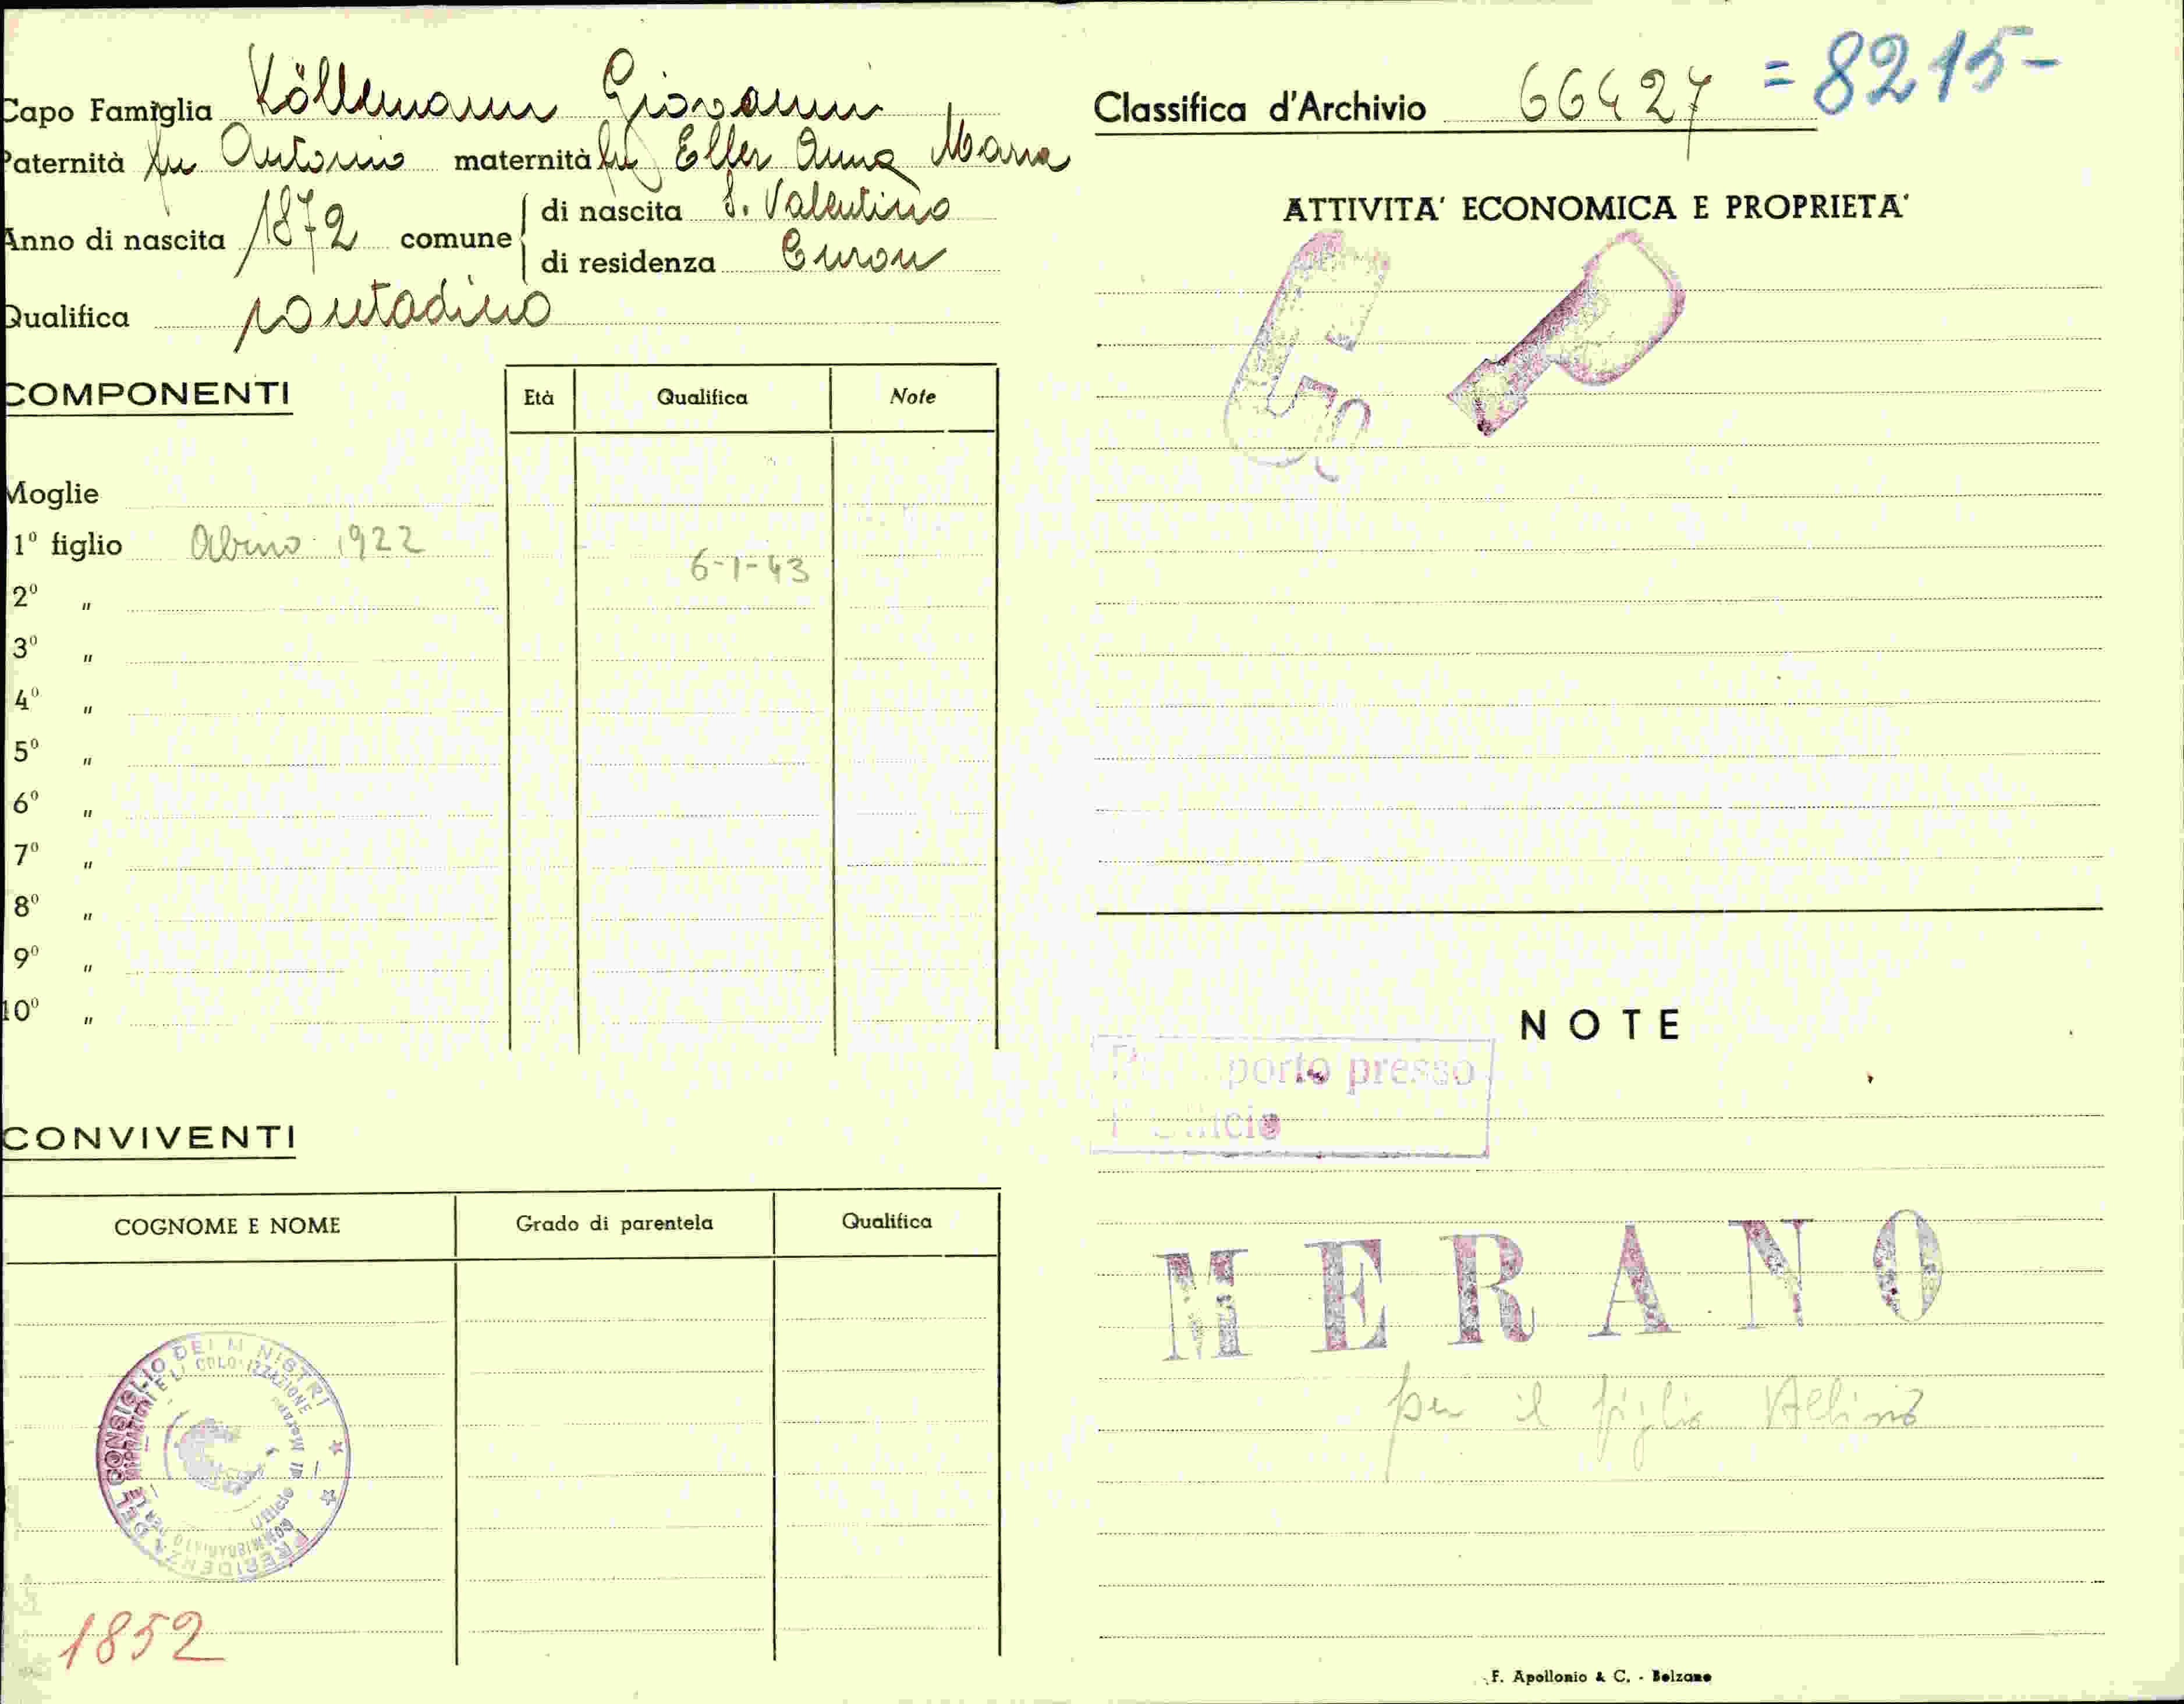 Capo Famiglia Köllemann Giovanni
Paternità fu Antonio maternità fu Eller Anna Maria
Anno di nascita 1872 comune di nascita S. Valentino
di residenza Curon
Qualifica contadino
COMPONENTI
Età Qualifica Note
Moglie
1° figlio Abino 1922
6-1-43
2° "
3° "
4° "
5° "
6° "
7° "
8° "
9° "
10° "
CONVIVENTI
COGNOME E NOME Grado di parentela Qualifica
PRESIDENZA DEL CONSIGLIO DEI MINISTRI
1852
Classifica d'Archivio 66427 = 8215-
ATTIVITA' ECONOMICA E PROPRIETA'
G. P
NOTE
porto presso
MERANO
per il figlio Albino
F. Apollonio & C. - Bolzano